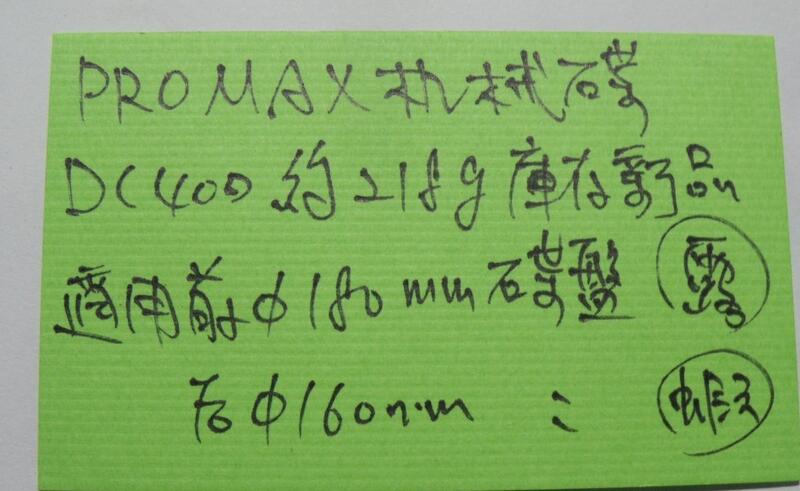 PROMAX机械碟
DC400 約218g庫存新品
適用前φ180mm碟盤 露
右φ160mm : 蝦